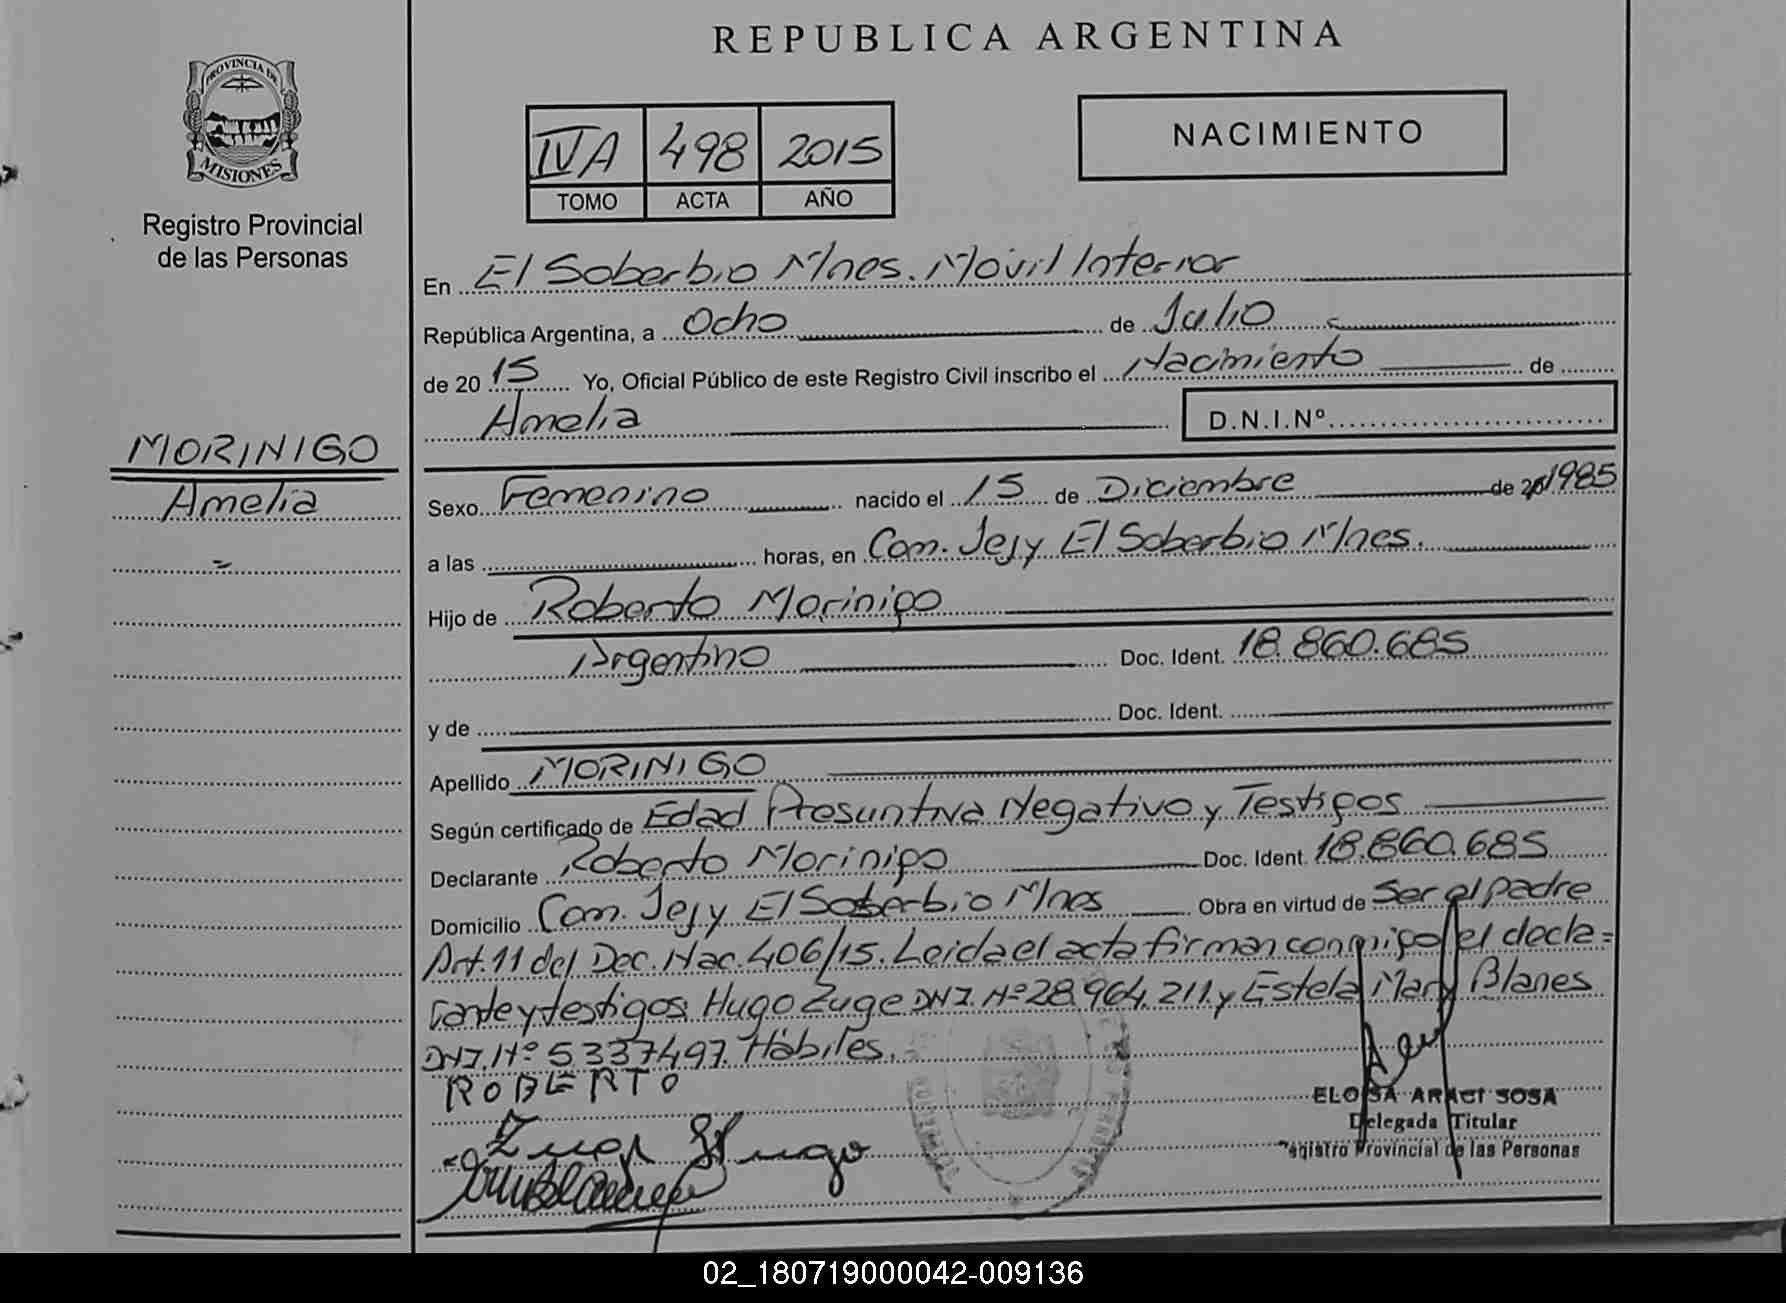 REPUBLICA ARGENTINA
PROVINCIA DE
MISIONES
Registro Provincial
de las Personas
IVA 498 2015
TOMO ACTA AÑO
NACIMIENTO
En El Soberbio Mnes. Móvil Interior
República Argentina, a Ocho de Julio
de 2015 Yo, Oficial Público de este Registro Civil inscribo el Nacimiento de
Amelia D.N.I.Nº
MORINIGO
Amelia
Sexo Femenino nacido el 15 de Diciembre de 20 1985
a las horas, en Com. Jejy El Soberbio Mnes.
Hijo de Roberto Morinigo
Argentino Doc. Ident. 18.860.685
y de Doc. Ident.
Apellido MORINIGO
Según certificado de Edad Presuntiva Negativo y Testigos
Declarante Roberto Morinigo Doc. Ident. 18.860.685
Domicilio Com. Jejy El Soberbio Mnes Obra en virtud de Ser el padre
Art. 11 del Dec. Nac. 406/15. Leida el acta firman conmigo el decla=
rante y testigos Hugo Zuge DNI. Nº 28.964.211 y Estela Mary Blanes
DNI. Nº 5337497. Hábiles.
ROBERTO
Zuge Hugo
ELOISA ARACI SOSA
Delegada Titular
Registro Provincial de las Personas
02_180719000042-009136